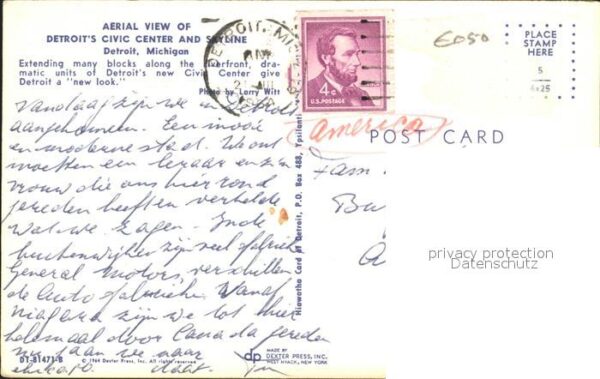 AERIAL VIEW OF
DETROIT'S CIVIC CENTER AND SKYLINE
Detroit, Michigan
Extending many blocks along the riverfront, dra-
matic units of Detroit's new Civic Center give
Detroit a "new look."
Photo by Larry Witt
Vandaag zijn we in Detroit
aangekomen. Een mooie
en moderne stad. We ont
moetten een leraar en zijn
vrouw die ons hier rond
gereden heeften vertelde
wat we zagen. In de
buitenwijken zijn veel fabrieken
General Motors, verschillen
de auto fabrieken. Vanaf
Niagara zijn we tot hier
helemaal door Canada gereden
nu gaan we naar
DT-81471-B
© 1964 Dexter Press, Inc. All rights reserved.
DETROIT, MICH
4¢
U.S. POSTAGE
america
POST CARD
Hiawatha Card of Detroit, P.O. Box 488, Ypsilanti
dp
MADE BY
DEXTER PRESS, INC.
WEST NYACK, NEW YORK
E050
PLACE
STAMP
HERE
5
4x25
Fam.
privacy protection
Datenschutz